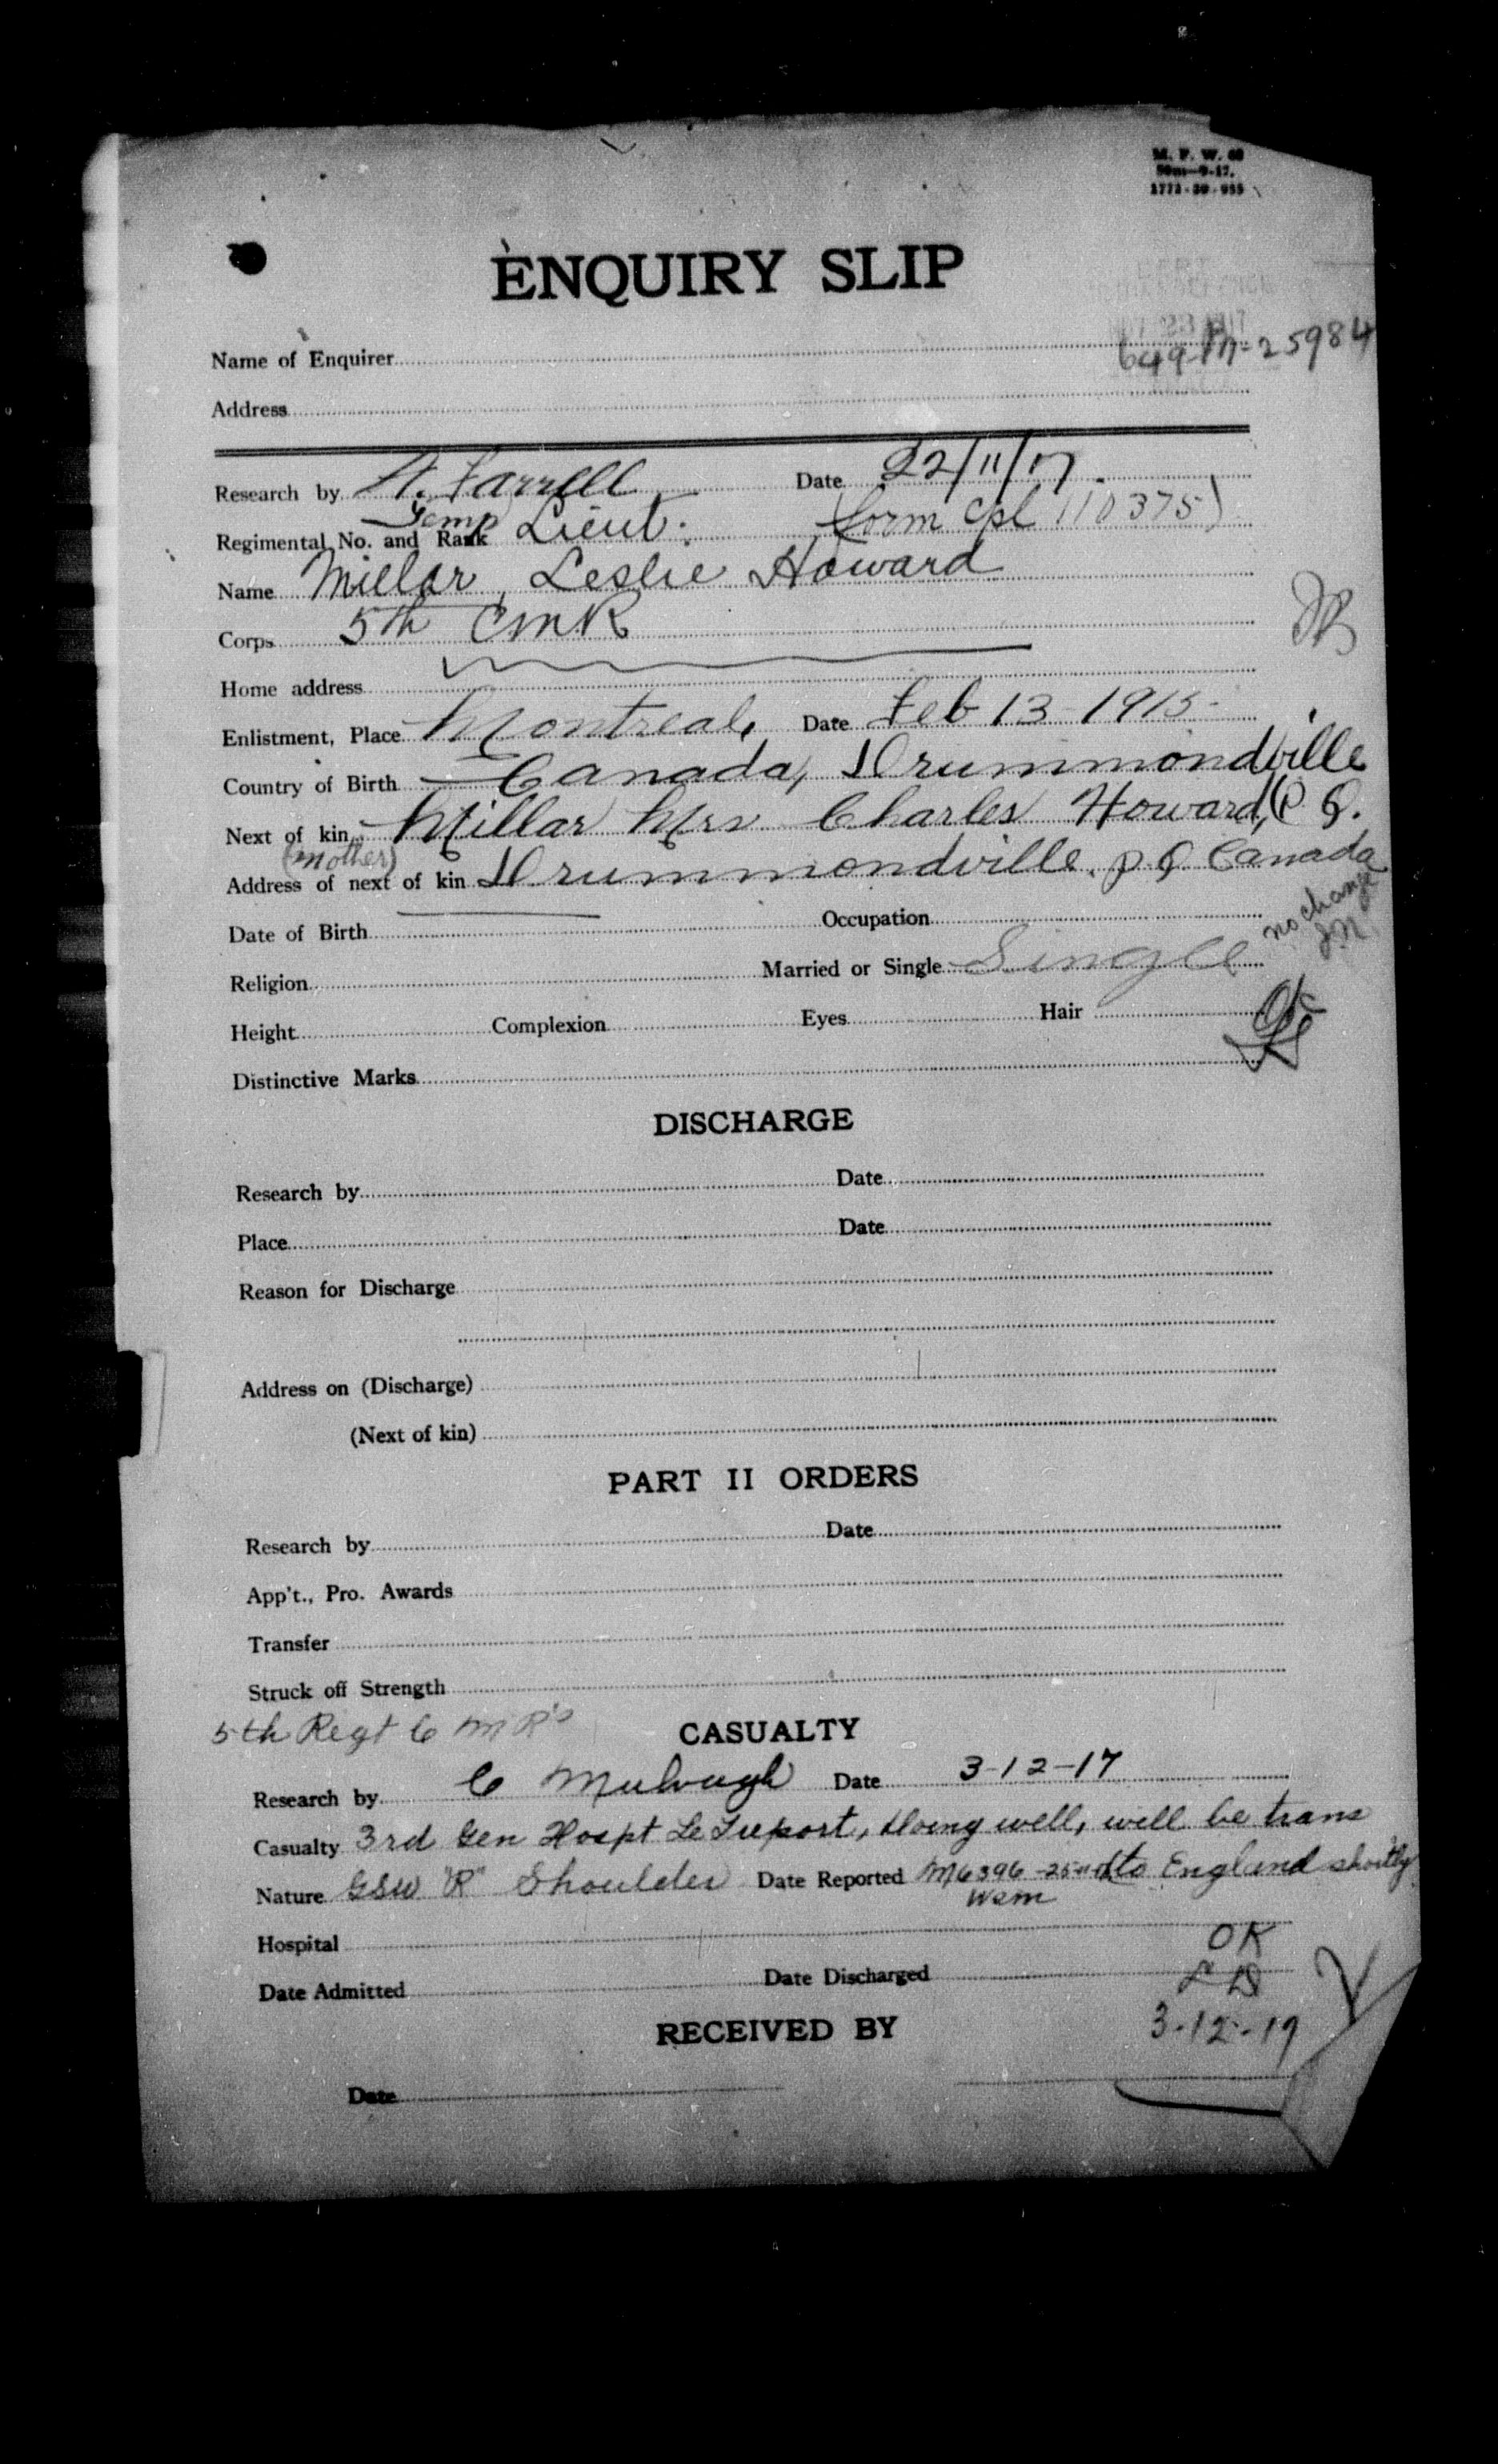 M. F. W. 60
50m-9-17.
1772-39-955
ENQUIRY SLIP
Name of Enquirer
649-M-25984
Address
Research by A. Farrell Date 22/11/17.
Regimental No. and Rank Temp Lieut. (form Cpl 110375)
Name Millar, Leslie Howard
Corps 5th CMR
Home address
Enlistment, Place Montreal, Date Feb 13-1915-
Country of Birth Canada, Drummondville
Next of kin Millar Mrs Charles Howard, P.Q.
(mother)
Address of next of kin Drummondville. P.Q Canada
no change
Date of Birth Occupation
Religion Married or Single Single
Height Complexion Eyes Hair
Distinctive Marks
DISCHARGE
Research by Date
Place Date
Reason for Discharge
Address on (Discharge)
(Next of kin)
PART II ORDERS
Research by Date
App't., Pro. Awards
Transfer
Struck off Strength
5th Regt C M R's
CASUALTY
Research by C Mulvugh Date 3-12-17
Casualty 3rd Gen Hospt Le Treport, doing well, will be trans
Nature GSW "R" Shoulder Date Reported M6396 to England shortly
Hospital
OK
Date Admitted Date Discharged
RECEIVED BY
3-12-17
Date